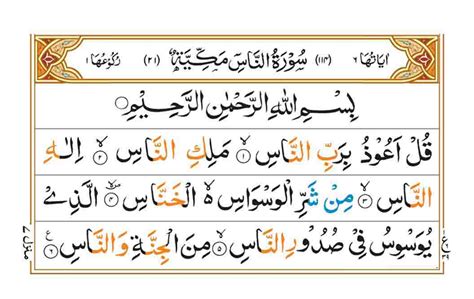 اٰيَاتُهَا ٦ (١١٤) سُوْرَةُ النَّاسِ مَكِّيَّةٌ (٢١) رُكُوْعُهَا ١
بِسْمِ اللّٰهِ الرَّحْمٰنِ الرَّحِيْمِ
قُلْ اَعُوْذُ بِرَبِّ النَّاسِ ۙ﴿١﴾ مَلِكِ النَّاسِ ۙ﴿٢﴾ اِلٰهِ
النَّاسِ ۙ﴿٣﴾ مِنْ شَرِّ الْوَسْوَاسِ ۵ۙ الْخَنَّاسِ ۪ۙ﴿٤﴾ الَّذِيْ
يُوَسْوِسُ فِيْ صُدُوْرِ النَّاسِ ۙ﴿٥﴾ مِنَ الْجِنَّةِ وَالنَّاسِ ﴿٦﴾